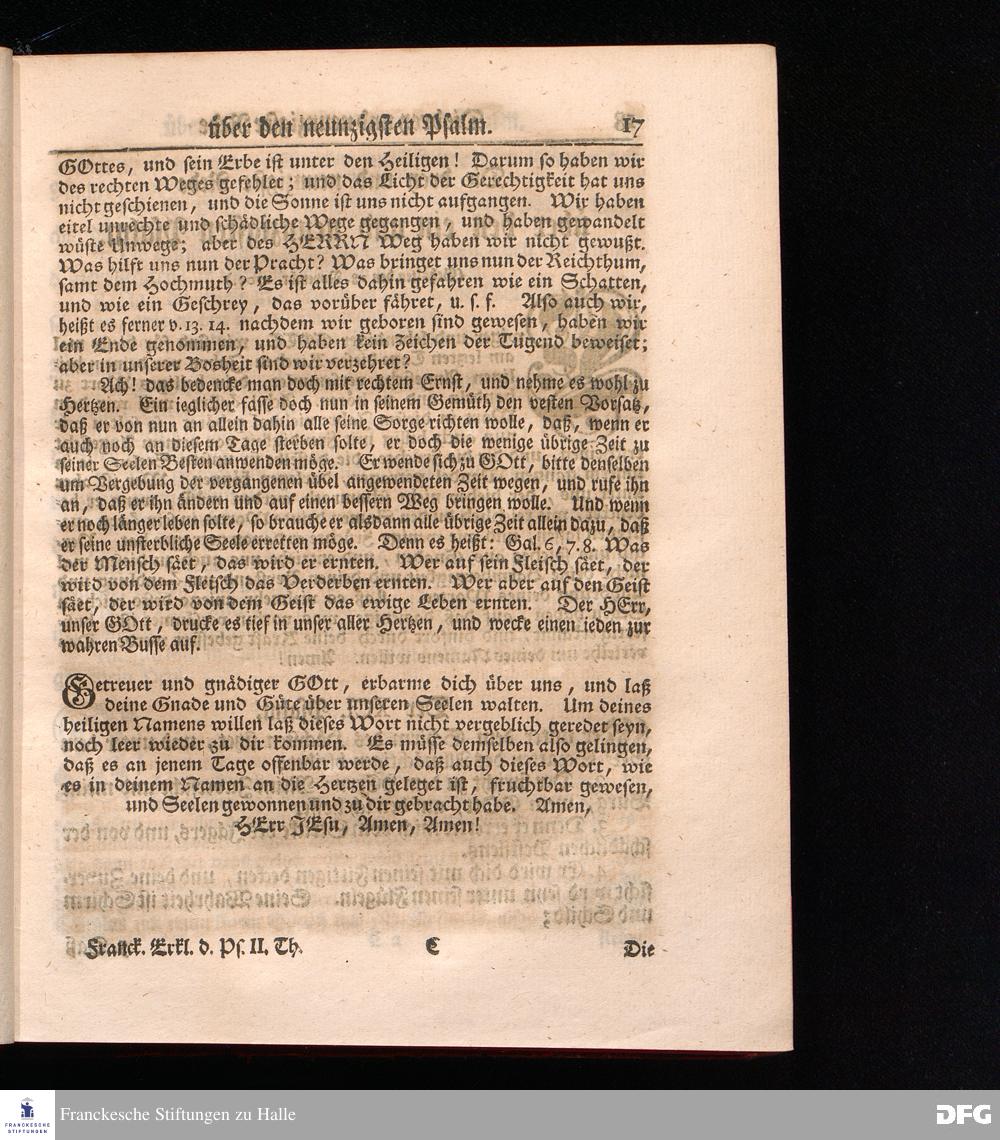 über den neunzigsten Psalm. 17
GOttes, und sein Erbe ist unter den Heiligen! Darum so haben wir
des rechten Weges gefehlet; und das Licht der Gerechtigkeit hat uns
nicht geschienen, und die Sonne ist uns nicht aufgangen. Wir haben
eitel unrechte und schädliche Wege gegangen, und haben gewandelt
wüste Unwege; aber des HERRN Weg haben wir nicht gewußt.
Was hilft uns nun der Pracht? Was bringet uns nun der Reichthum,
samt dem Hochmuth? Es ist alles dahin gefahren wie ein Schatten,
und wie ein Geschrey, das vorüber fähret, u. s. f. Also auch wir,
heißt es ferner v. 13. 14. nachdem wir geboren sind gewesen, haben wir
ein Ende genommen, und haben kein Zeichen der Tugend beweiset;
aber in unserer Bosheit sind wir verzehret?
Ach! das bedencke man doch mit rechtem Ernst, und nehme es wohl zu
Hertzen. Ein ieglicher fasse doch nun in seinem Gemüth den vesten Vorsatz,
daß er von nun an allein dahin alle seine Sorge richten wolle, daß, wenn er
auch noch an diesem Tage sterben solte, er doch die wenige übrige Zeit zu
seiner Seelen Besten anwenden möge. Er wende sich zu GOtt, bitte denselben
um Vergebung der vergangenen übel angewendeten Zeit wegen, und rufe ihn
an, daß er ihn ändern und auf einen bessern Weg bringen wolle. Und wenn
er noch länger leben solte, so brauche er alsdann alle übrige Zeit allein dazu, daß
er seine unsterbliche Seele erretten möge. Denn es heißt: Gal. 6, 7. 8. Was
der Mensch säet, das wird er ernten. Wer auf sein Fleisch säet, der
wird von dem Fleisch das Verderben ernten. Wer aber auf den Geist
säet, der wird von dem Geist das ewige Leben ernten. Der HErr,
unser GOtt, drucke es tief in unser aller Hertzen, und wecke einen ieden zur
wahren Busse auf.
Getreuer und gnädiger GOtt, erbarme dich über uns, und laß
deine Gnade und Güte über unseren Seelen walten. Um deines
heiligen Namens willen laß dieses Wort nicht vergeblich geredet seyn,
noch leer wieder zu dir kommen. Es müsse demselben also gelingen,
daß es an jenem Tage offenbar werde, daß auch dieses Wort, wie
es in deinem Namen an die Hertzen geleget ist, fruchtbar gewesen,
und Seelen gewonnen und zu dir gebracht habe. Amen,
HErr JEsu, Amen, Amen!
Franck. Erkl. d. Ps. II. Th. C Die
FRANCKESCHE
STIFTUNGEN
Franckesche Stiftungen zu Halle
DFG